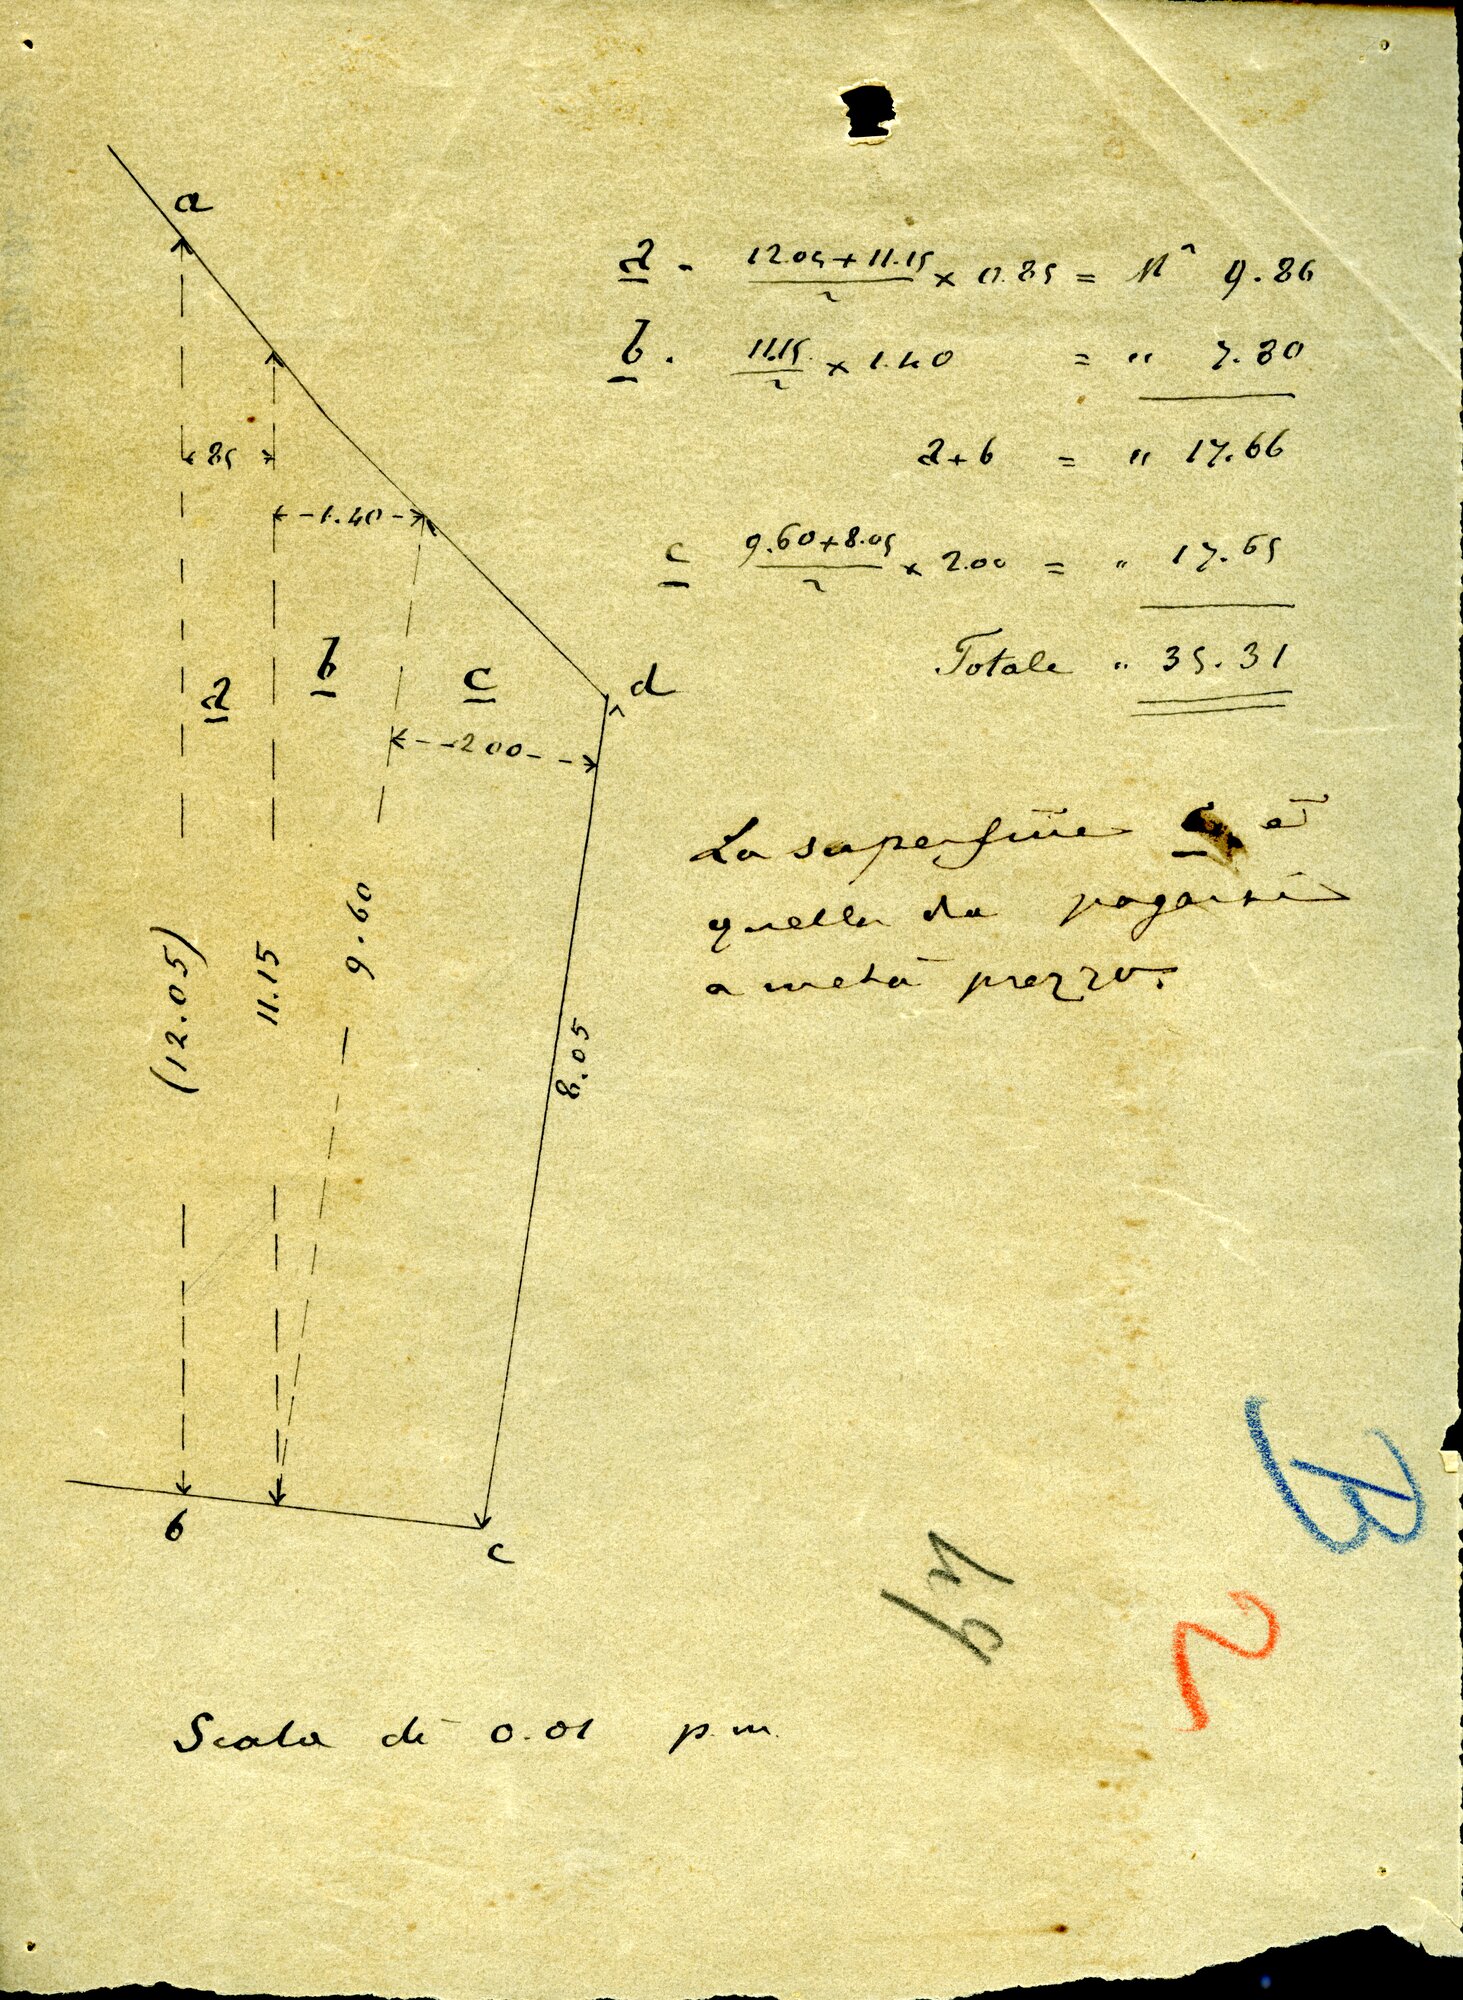 a
a . 12.05 + 11.15 / 2 × 0.85 = M² 9.86
b . 11.15 / 2 × 1.40 = " 7.80
85
a + b = " 17.66
1.40
c 9.60 + 8.05 / 2 × 2.00 = " 17.65
Totale " 35.31
a
b
c
d
2 00
La superficie c. è
quella da pagarsi
a metà prezzo.
(12.05)
11.15
9.60
8.05
b
c
B
2
Scala di 0.01 p. m.